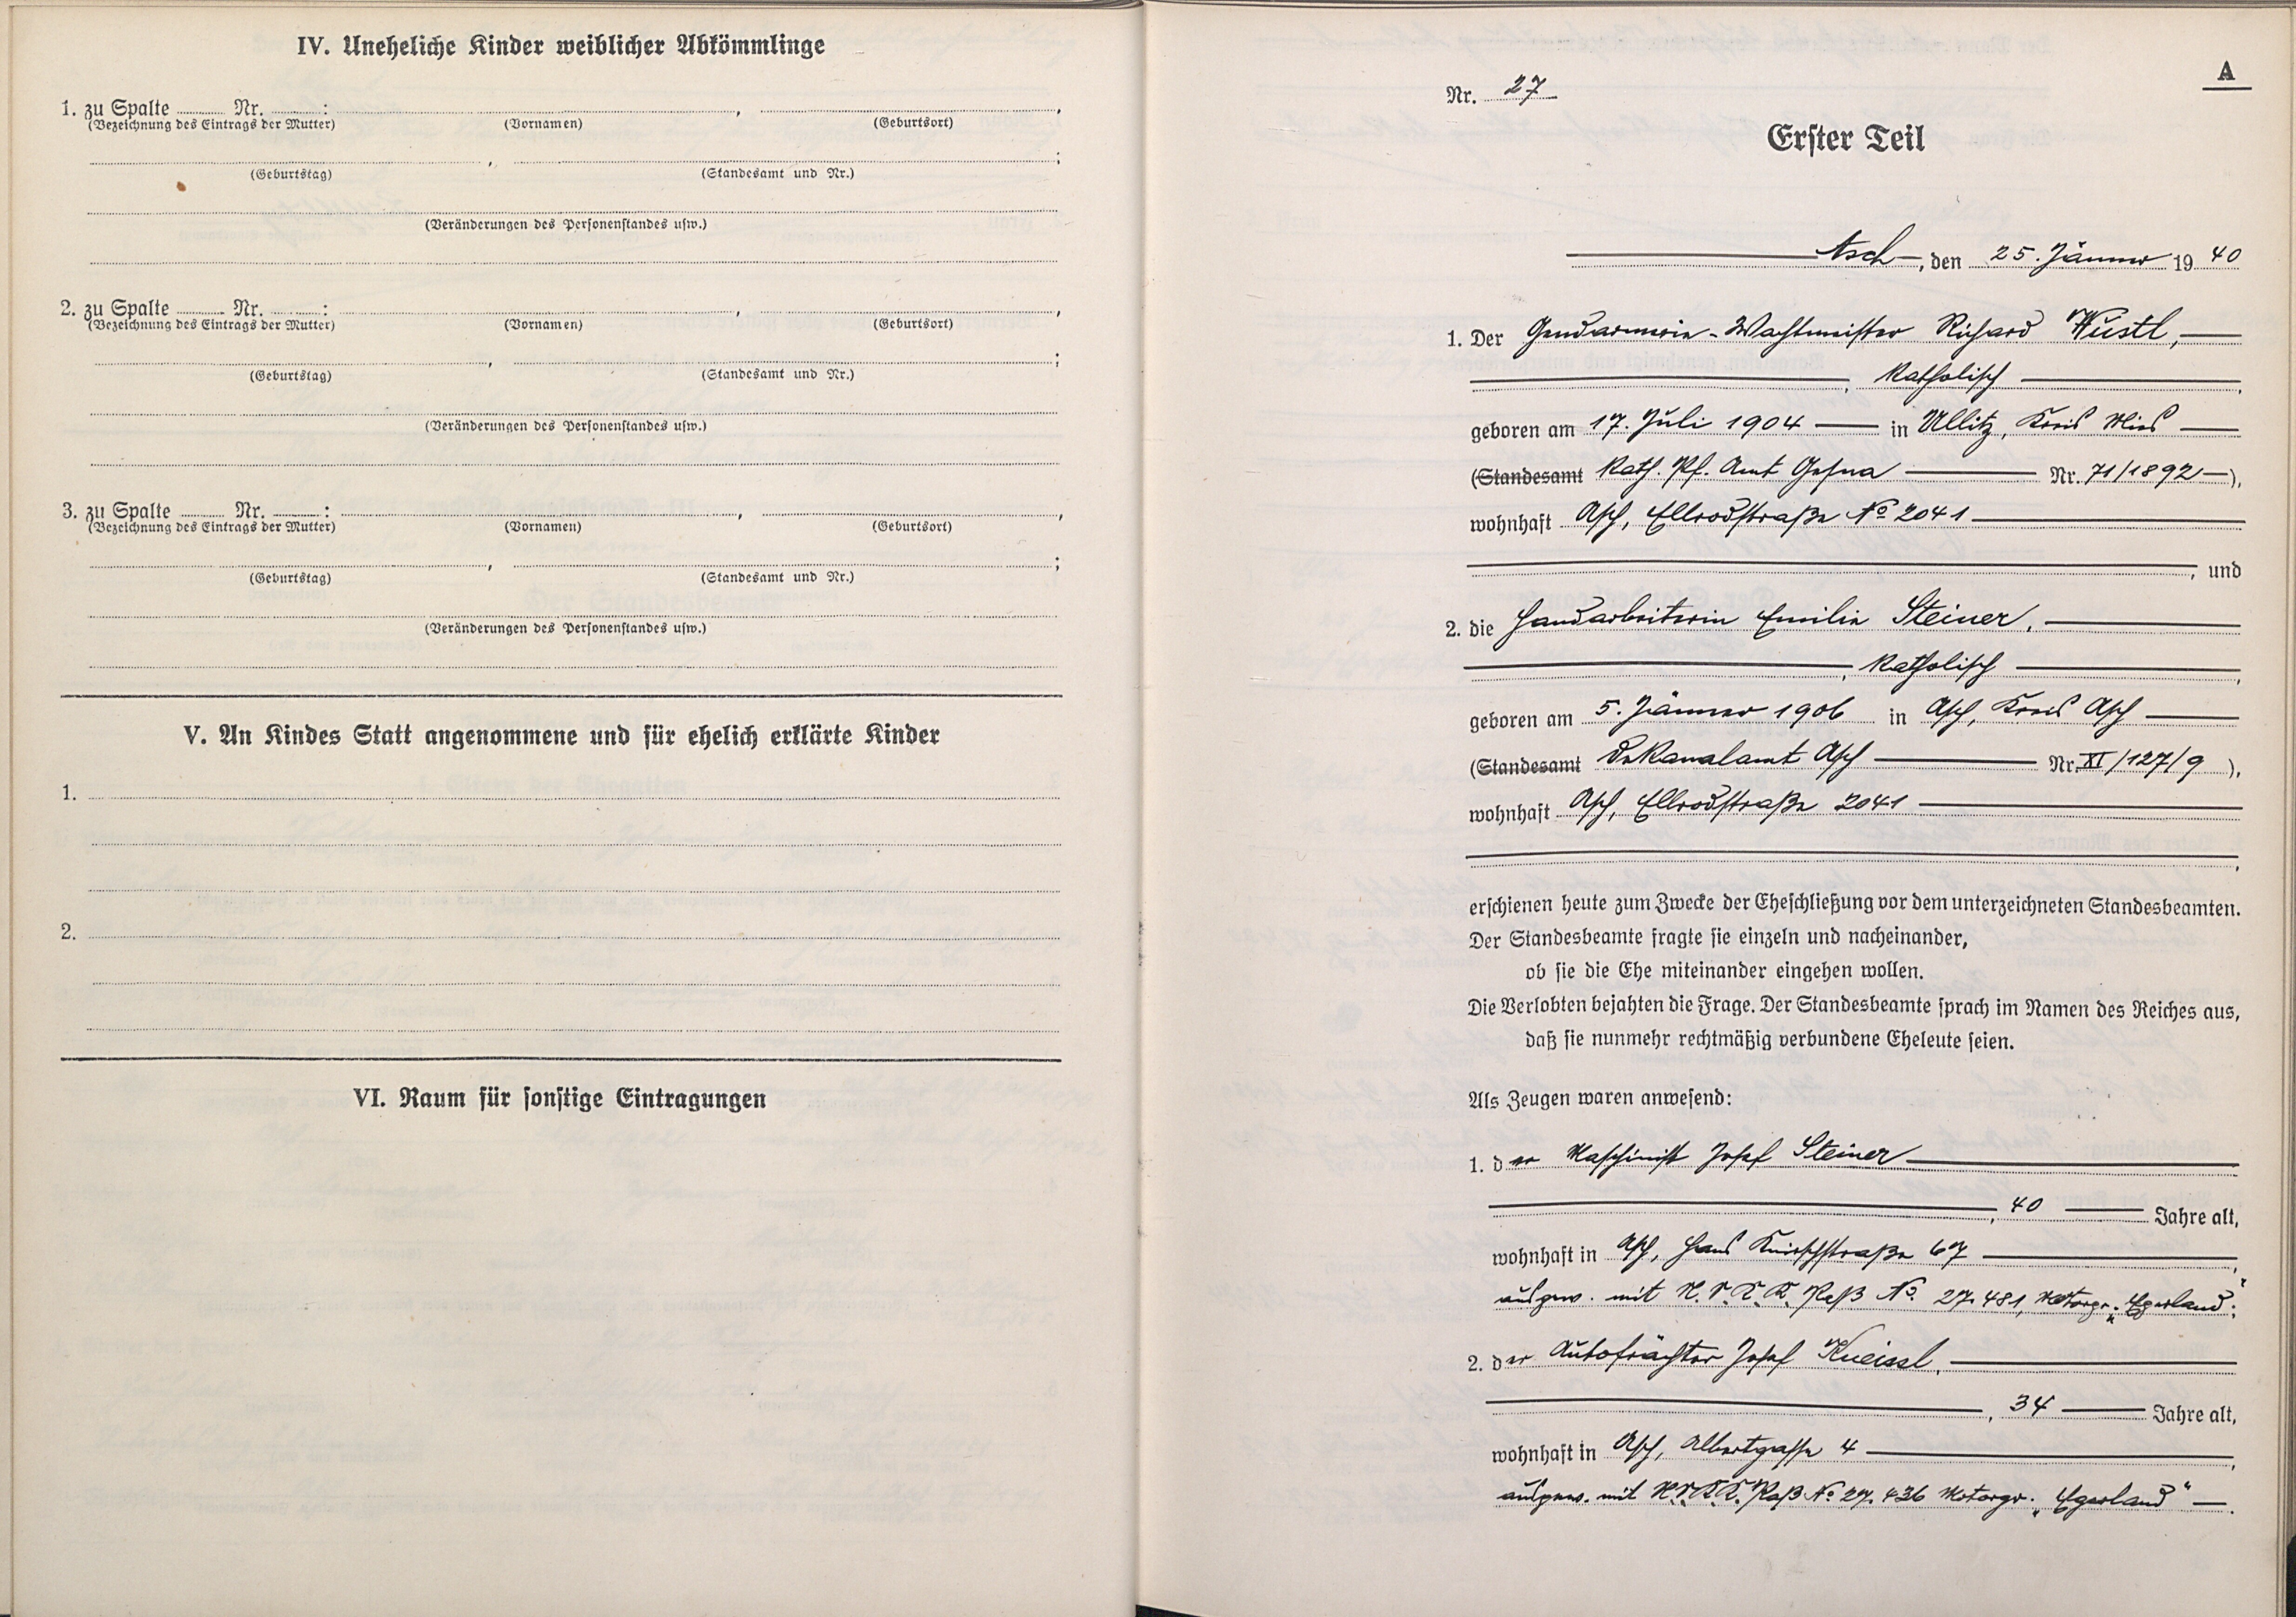 IV. Uneheliche Kinder weiblicher Abkömmlinge
1. zu Spalte ........ Nr. ........ : , ,
(Bezeichnung des Eintrags der Mutter) (Vornamen) (Geburtsort)
, ;
(Geburtstag) (Standesamt und Nr.)
(Veränderungen des Personenstandes usw.)
2. zu Spalte ........ Nr. ........ : , ,
(Bezeichnung des Eintrags der Mutter) (Vornamen) (Geburtsort)
, ;
(Geburtstag) (Standesamt und Nr.)
(Veränderungen des Personenstandes usw.)
3. zu Spalte ........ Nr. ........ : , ,
(Bezeichnung des Eintrags der Mutter) (Vornamen) (Geburtsort)
, ;
(Geburtstag) (Standesamt und Nr.)
(Veränderungen des Personenstandes usw.)
V. An Kindes Statt angenommene und für ehelich erklärte Kinder
1.
2.
VI. Raum für sonstige Eintragungen
A
Nr. 27
Erster Teil
Asch, den 25. Jänner 1940
1. Der Gendarmerie-Wachtmeister Richard Wüstl,
, katholisch ,
geboren am 17. Juli 1904 in Ullitz, Kreis Mies
(Standesamt Kath. Pf. Amt Gosna Nr. 71/1892),
wohnhaft Asch, Ellrodstraße No 2041
, und
2. die Handarbeiterin Emilie Steiner,
, katholisch ,
geboren am 5. Jänner 1906 in Asch, Kreis Asch
(Standesamt Dekanalamt Asch Nr. XI/127/9 ),
wohnhaft Asch, Ellrodstraße 2041
,
erschienen heute zum Zwecke der Eheschließung vor dem unterzeichneten Standesbeamten.
Der Standesbeamte fragte sie einzeln und nacheinander,
ob sie die Ehe miteinander eingehen wollen.
Die Verlobten bejahten die Frage. Der Standesbeamte sprach im Namen des Reiches aus,
daß sie nunmehr rechtmäßig verbundene Eheleute seien.
Als Zeugen waren anwesend:
1. der Maschinist Josef Steiner
, 40 Jahre alt,
wohnhaft in Asch, Hans Knirschstraße 67 ,
ausgew. mit N.S.K.K. Paß No. 27.481, Motorgr. „Egerland";
2. der Autofrächter Josef Kneissl,
, 34 Jahre alt,
wohnhaft in Asch, Albertgasse 4 ,
ausgew. mit N.S.K.K. Paß No 27.436 Motorgr. „Egerland" .